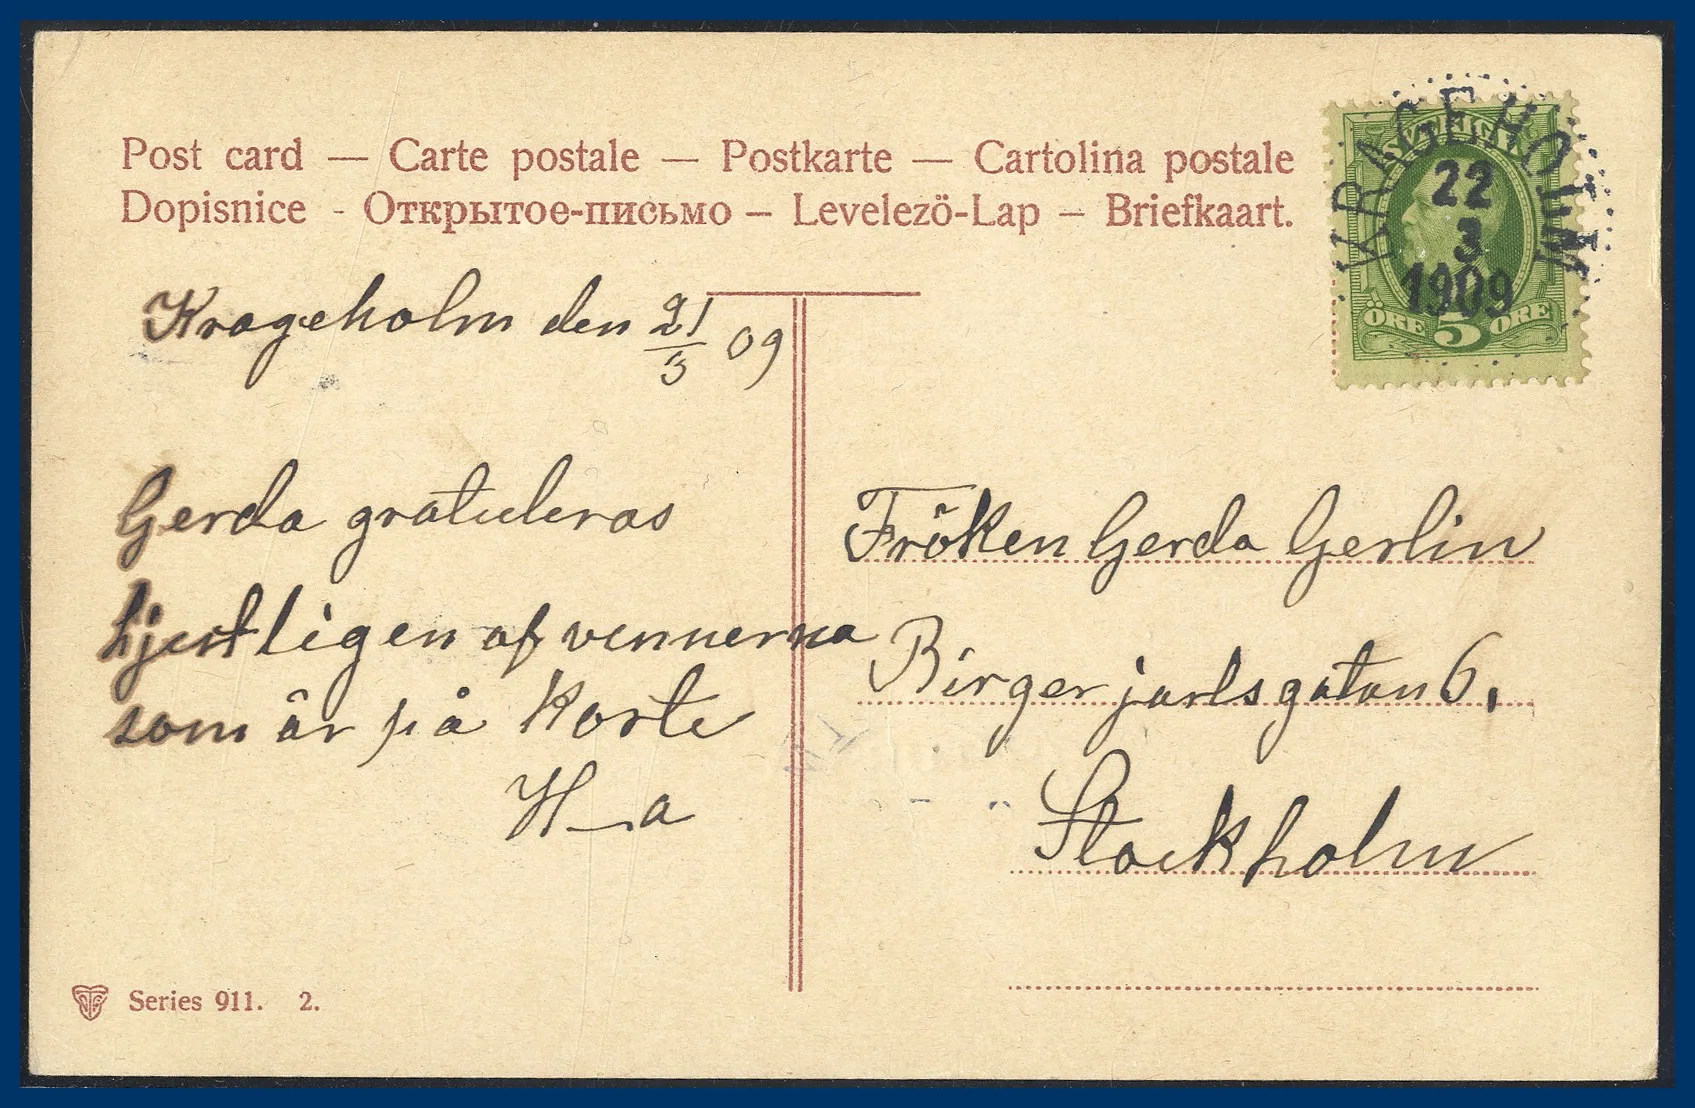 Post card — Carte postale — Postkarte — Cartolina postale
Dopisnice - Открытое-письмо — Levelezö-Lap — Briefkaart.
KRAGEHOLM
22
3
1909
SVERIGE
ÖRE 5 ÖRE
Krageholm den 21/3 09
Gerda gratuleras
hjertligen af vennerna
som är på Korte
H—a
Fröken Gerda Gerlin
Birger jarlsgatan 6,
Stockholm
Series 911. 2.